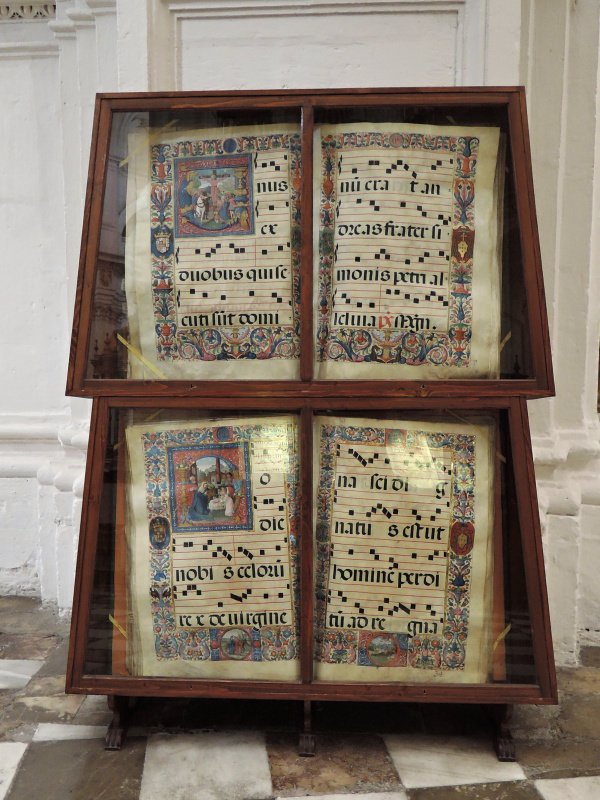 nus
ex
duobus qui se
cuti sūt domi
nū erat an
dreas frater si
monis petri al
leluia ps
O
die
nobis celorū
rex de uirgine
na sci dig
natus est ut
hominē perdi
tū ad regna